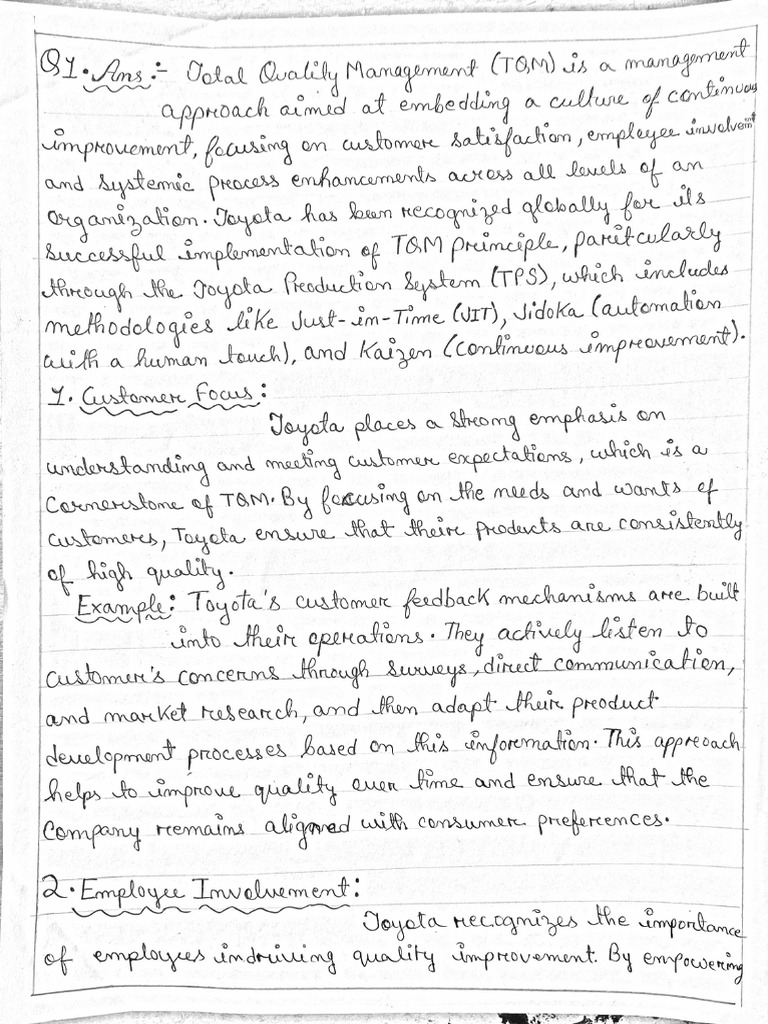 Q1. Ans :- Total Quality Management (TQM) is a management
approach aimed at embedding a culture of continuous
improvement, focusing on customer satisfaction, employee involvement
and systemic process enhancements across all levels of an
organization. Toyota has been recognized globally for its
successful implementation of TQM principle, particularly
through the Toyota Production System (TPS), which includes
methodologies like Just-in-Time (JIT), Jidoka (automation
with a human touch), and Kaizen (continuous improvement).
1. Customer Focus :
Toyota places a strong emphasis on
understanding and meeting customer expectations, which is a
cornerstone of TQM. By focusing on the needs and wants of
customers, Toyota ensure that their products are consistently
of high quality.
Example : Toyota's customer feedback mechanisms are built
into their operations. They actively listen to
customer's concerns through surveys, direct communication,
and market research, and then adapt their product
development processes based on this information. This approach
helps to improve quality over time and ensure that the
company remains aligned with consumer preferences.
2. Employee Involvement :
Toyota recognizes the importance
of employees in driving quality improvement. By empowering